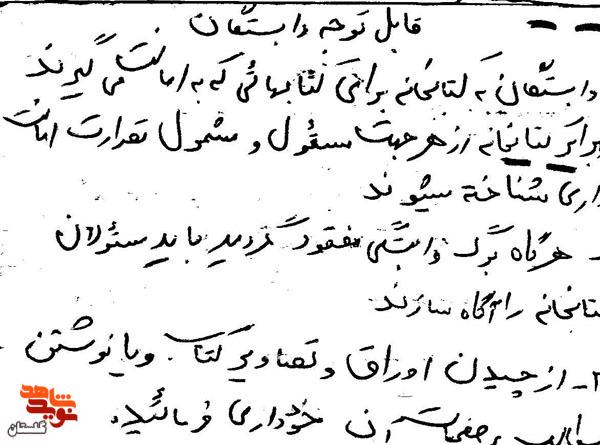 قابل توجه وابستگان
وابستگان به کتابخانه برای کتابهائی که به امانت می گیرند
برابر کتابخانه از هر جهت مسئول و مشمول مقررات امانت
داری شناخته میشوند
هرگاه برگ وابستگی مفقود گردید باید مسئولان
کتابخانه را آگاه سازند
۲- از چیدن اوراق و تصاویر کتاب و یا نوشتن
مطالب بر صفحات آن خودداری فرمائید.
نوید شاهد
گلستان